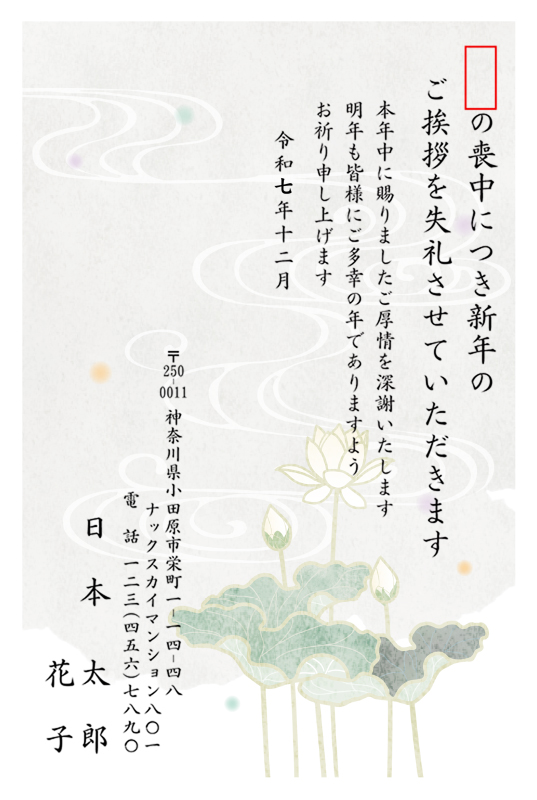 の喪中につき新年の
ご挨拶を失礼させていただきます
本年中に賜りましたご厚情を深謝いたします
明年も皆様にご多幸の年でありますよう
お祈り申し上げます
令和七年十二月
〒250-0011 神奈川県小田原市栄町一-一四-四八
ナックスカイマンション八〇一
電話 一二三(四五六)七八九〇
日本 太郎
花子